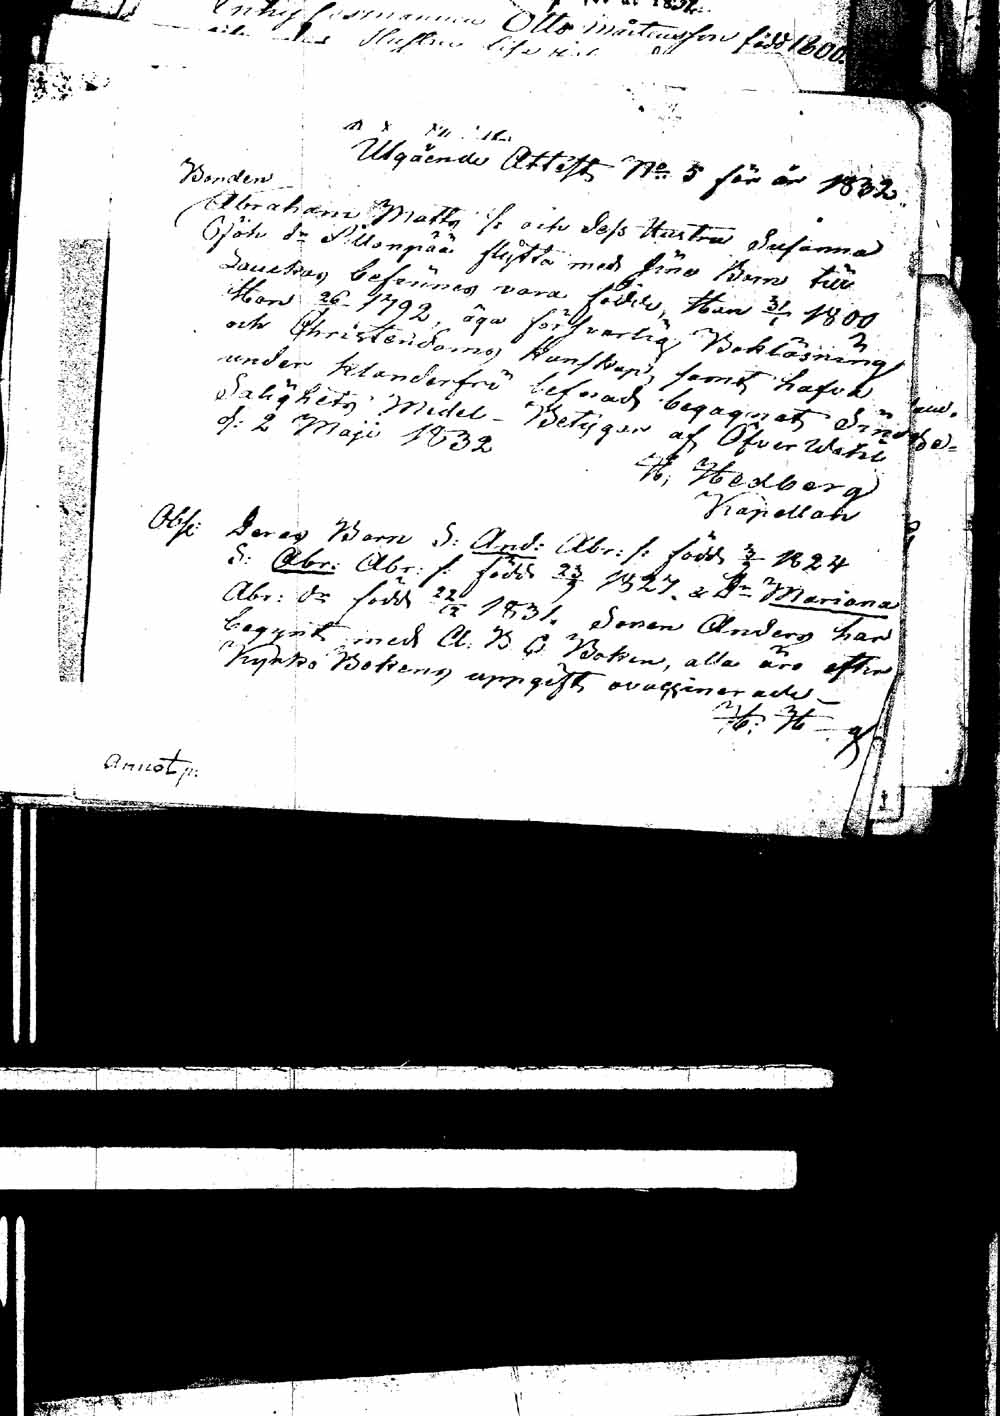 Otto Mårtensson född 1800.
Utgående Attest No 5 för år 1832.
Bonden
Abraham Matts s: och dess Hustru Susanna
Sjöh dr Sillonpää flytta med sine Barn till
befinnes vara födde, Han 31/1 1800
Hon 26 1792, äga försvarlig Bokläsning
och Christendoms Kunskap, samt hafva
under klanderfri lefnad begagnat Sine
Salighets Medel - Betygar af Öfver
d: 2 Maji 1832
H: Hedberg
Kapellan
Obs: Deras Barn S: And: Abr: s: född 3/3 1824
S: Abr: Abr: s: född 23 1827. & Dr Mariana
Abr: dr född 22/12 1831. Sonen Anders har
begynt med A. B C Boken, alla äro efter
Kyrko Bokens uppgift ovaccinerade -
H: H - g
Annot p: